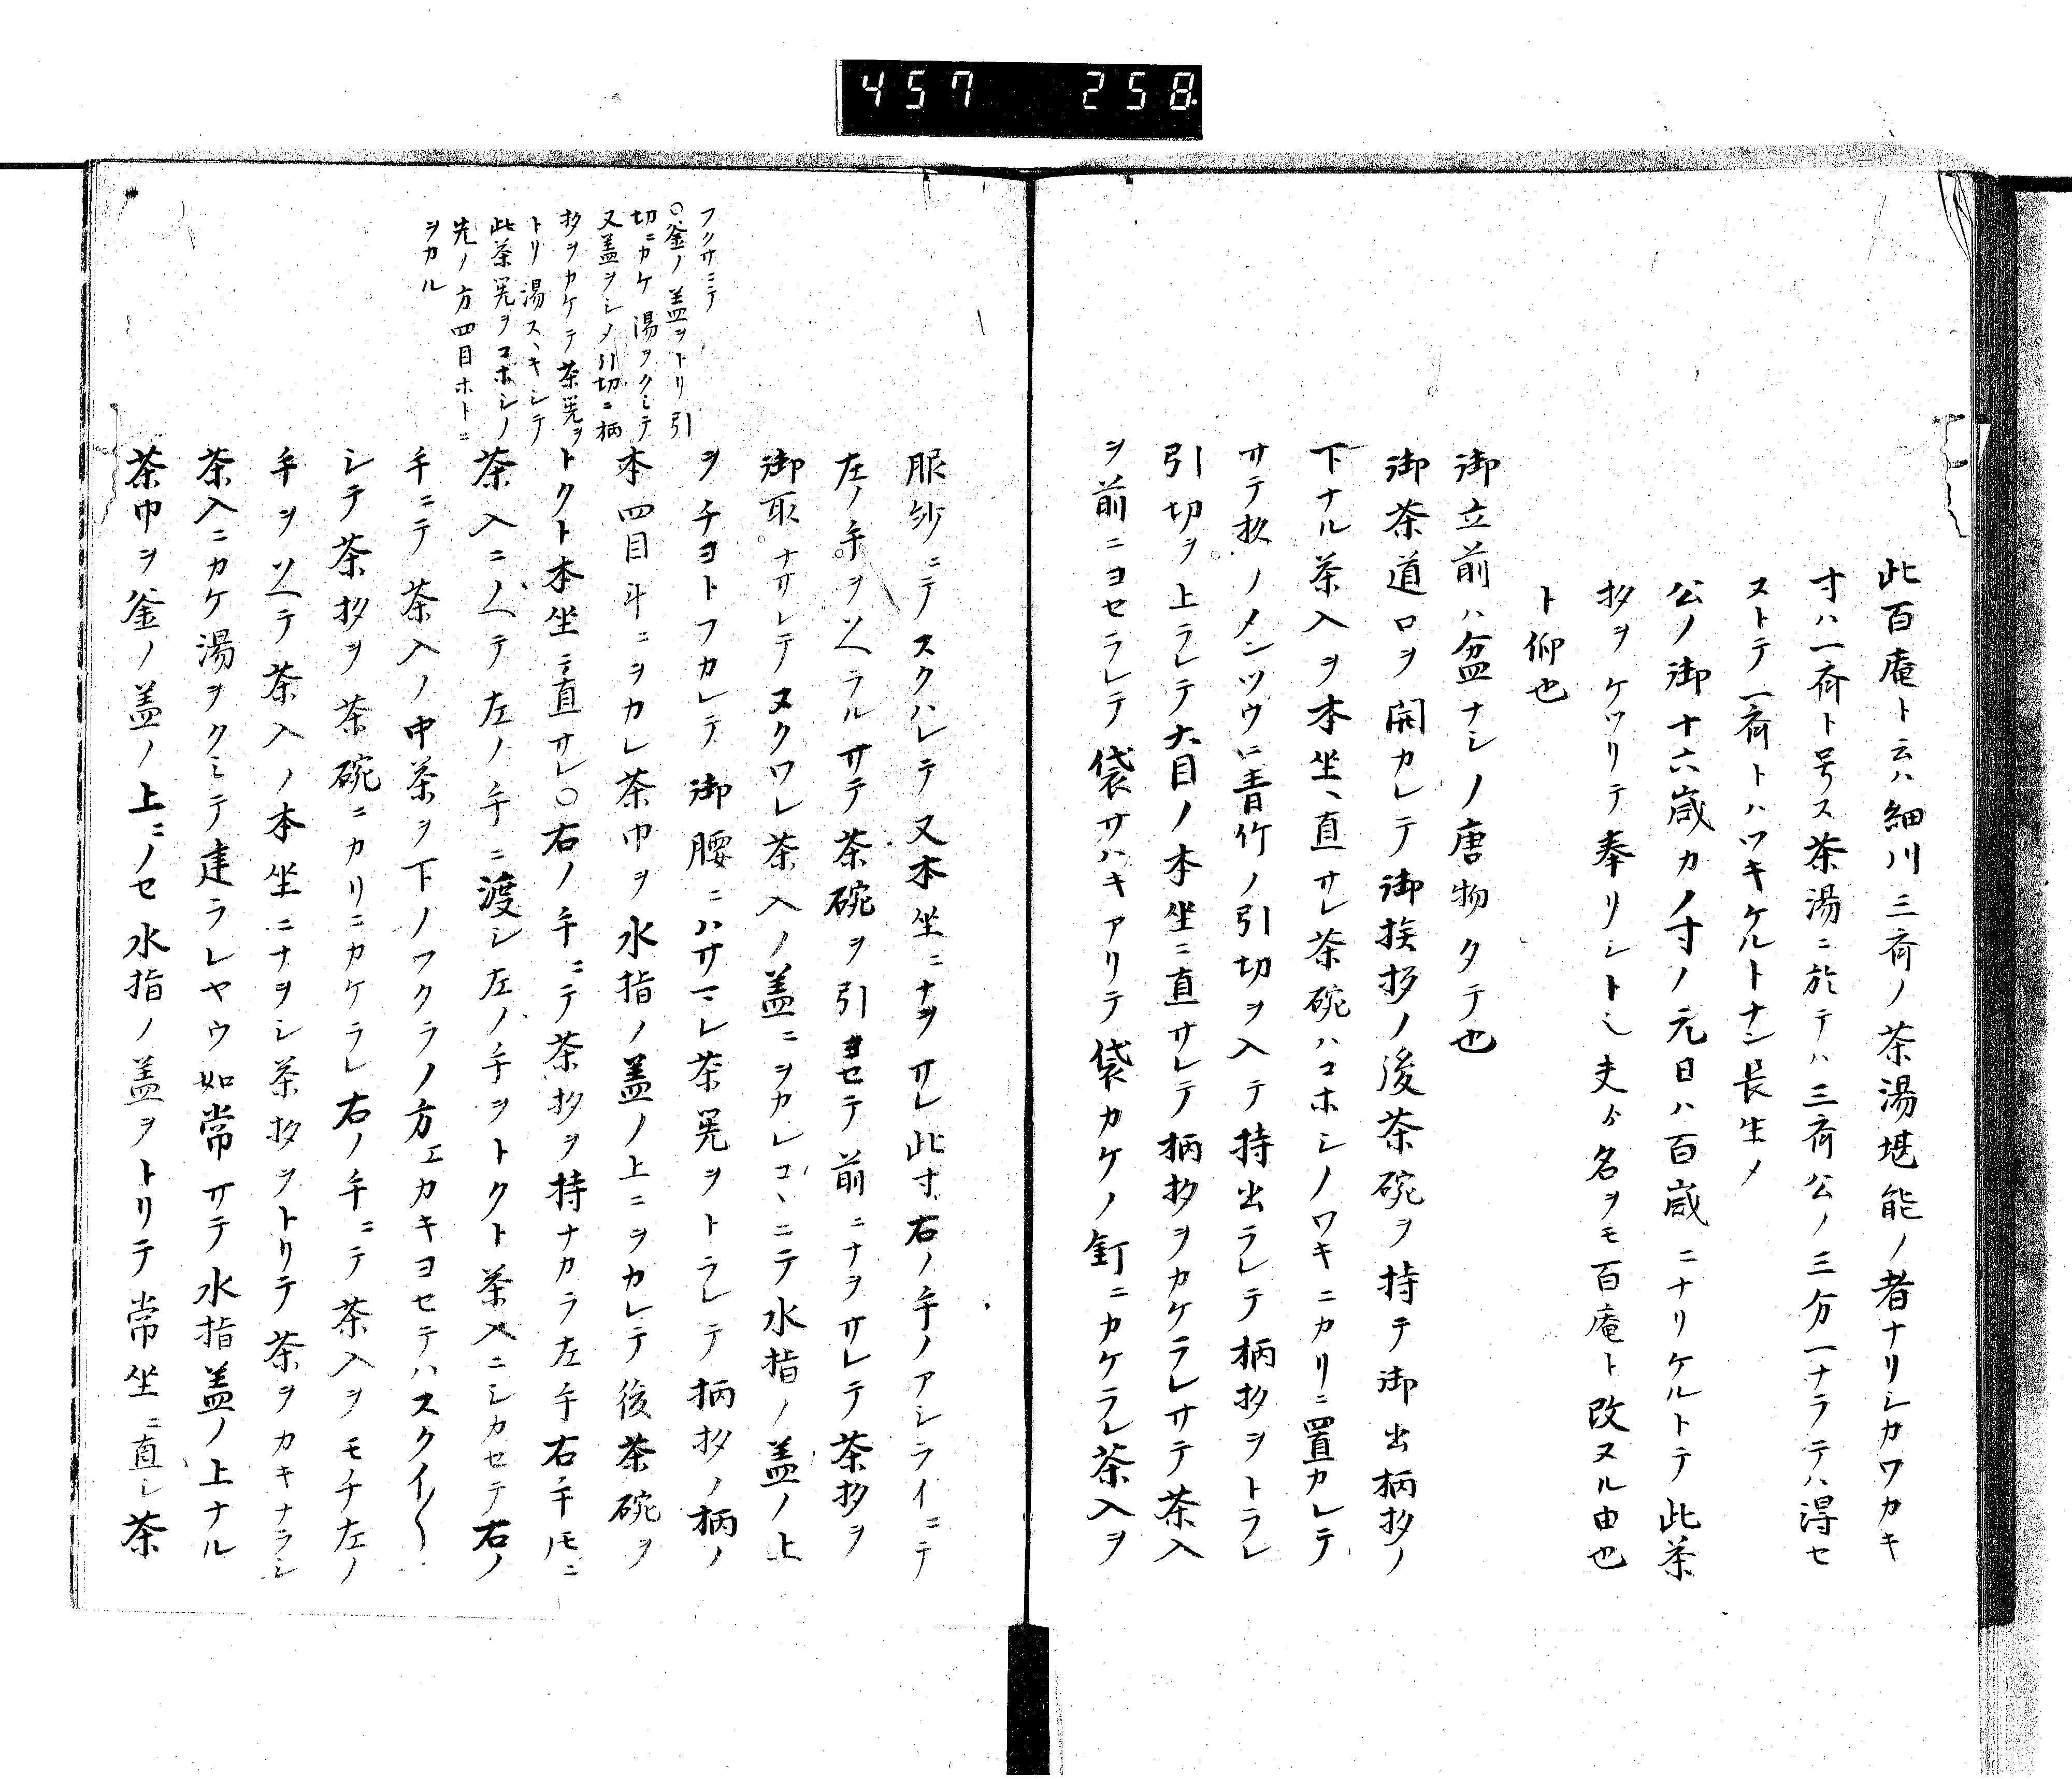 457 258
此百庵ト云ハ細川三斎ノ茶湯堪能ノ者ナリシカワカキ
寸ハ一斎ト号ス茶湯ニ於テハ三斎公ノ三分一ナラテハ得セ
ヌトテ一斎トハツキケルトナン長生メ
公ノ御十六歳カノ寸ノ元日ハ百歳ニナリケルトテ此茶
杓ヲケツリテ奉リシト〆夫ゟ名ヲモ百庵ト改ヌル由也
ト仰也
御立前ハ盆ナシノ唐物タテ也
御茶道口ヲ開カレテ御挨拶ノ後茶碗ヲ持テ御出柄杓ノ
下ナル茶入ヲ本坐ヘ直サレ茶碗ハコホシノワキニカリニ置カレテ
サテ杦ノメンツウニ青竹ノ引切ヲ入テ持出ラレテ柄杓ヲトラレ
引切ヲ上ラレテ大目ノ本坐ニ直サレテ柄杓ヲカケラレサテ茶入
ヲ前ニヨセラレテ袋サハキアリテ袋カケノ釘ニカケラレ茶入ヲ
服紗ニテスクハレテ又本坐ニナヲサレ此寸右ノ手ノアシライニテ
左ノ手ヲソヘラルサテ茶碗ヲ引ヨセテ前ニナヲサレテ茶杓ヲ
御取ナサレテヌクワレ茶入ノ蓋ニヲカレコヽニテ水指ノ蓋ノ上
ヲチヨトフカレテ御腰ニハサマレ茶筅ヲトラレテ柄杓ノ柄ノ
本四目斗ニヲカレ茶巾ヲ水指ノ蓋ノ上ニヲカレテ後茶碗ヲ
トクト本坐ニ直サレ○右ノ手ニテ茶杓ヲ持ナカラ左手右手トモニ
茶入ニノヘテ左ノ手ニ渡シ左ノ手ヲトクト茶入ニシカセテ右ノ
手ニテ茶入ノ中茶ヲ下ノワクラノ方エカキヨセテハスクイ〱
シテ茶杓ヲ茶碗ニカリニカケラレ右ノ手ニテ茶入ヲモチ左ノ
手ヲソヘテ茶入ノ本坐ニナヲシ茶杓ヲトリテ茶ヲカキナラシ
茶入ニカケ湯ヲクミテ建ラレヤウ如常サテ水指蓋ノ上ナル
茶巾ヲ釜ノ蓋ノ上ニノセ水指ノ蓋ヲトリテ常坐ニ直シ茶
フクサニテ
○釜ノ蓋ヲトリ引
切ニカケ湯ヲクミテ
又蓋ヲシメ引切ニ柄
杓ヲカケテ茶筅ヲ
トリ湯スヽキシテ
此茶筅ヲコホシノ
先ノ方四目ホトニ
ヲカル